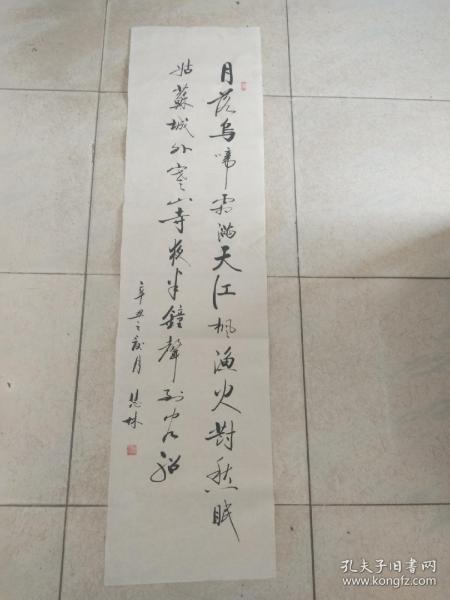 月落乌啼霜满天江枫渔火對愁眠
姑蘇城外寒山寺夜半鐘聲到客船
辛丑之
月
孔夫子旧书网
www.kongfz.com